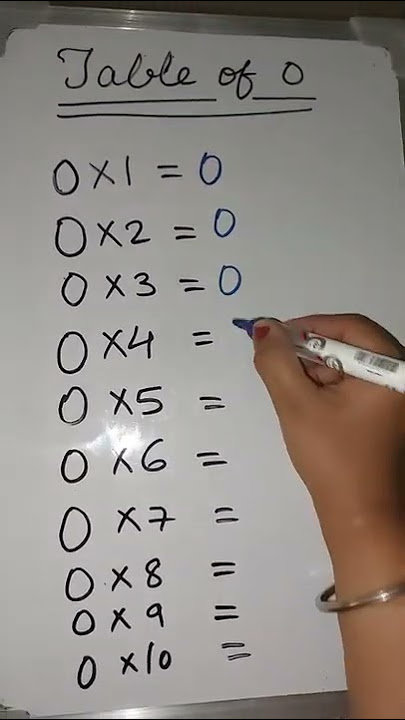 Table of 0
0 × 1 = 0
0 × 2 = 0
0 × 3 = 0
0 × 4 =
0 × 5 =
0 × 6 =
0 × 7 =
0 × 8 =
0 × 9 =
0 × 10 =